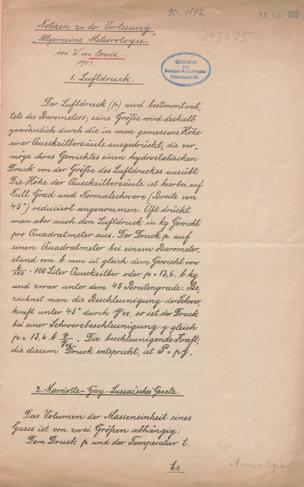 90. 1842
Notizen zu der Vorlesung
Allgemeine Meteorologie.
von W. von
1903
Bibliothek
Offenbach a.M.
1. Luftdruck.
Der Luftdruck (p) wird bestimmt mit-
tels des Barometers; seine Größe wird deshalb
gewöhnlich durch die in mm gemessene Höhe
einer Quecksilbersäule ausgedrückt, die ver-
möge ihres Gewichtes einen hydrostatischen
Druck von der Größe des Luftdruckes ausübt.
Die Höhe der Quecksilbersäule ist hierbei auf
Null Grad und Normalschwere (Breite von
45°) reduciert angenommen. Oft drückt
man aber auch den Luftdruck in kg Gewicht
pro Quadratmeter aus. Der Druck p auf
einen Quadratmeter bei einem Barometer-
stand von b mm ist gleich dem Gewicht von
100 Liter Quecksilber oder p = 13,6. b kg
und zwar unter dem 45 Breitengrade. Be-
zeichnet man die Beschleunigung der Schwer-
kraft unter 45° durch so ist der Druck
bei einer Schwerebeschleunigung g gleich
p = 13,6 b Die beschleunigende Kraft,
die diesem Druck entspricht, ist P = p g.
2. Mariotte-Gay-Lussacsches Gesetz.
Das Volumen der Masseneinheit eines
Gases ist von zwei Größen abhängig:
Dem Druck p und der Temperatur t.
Es